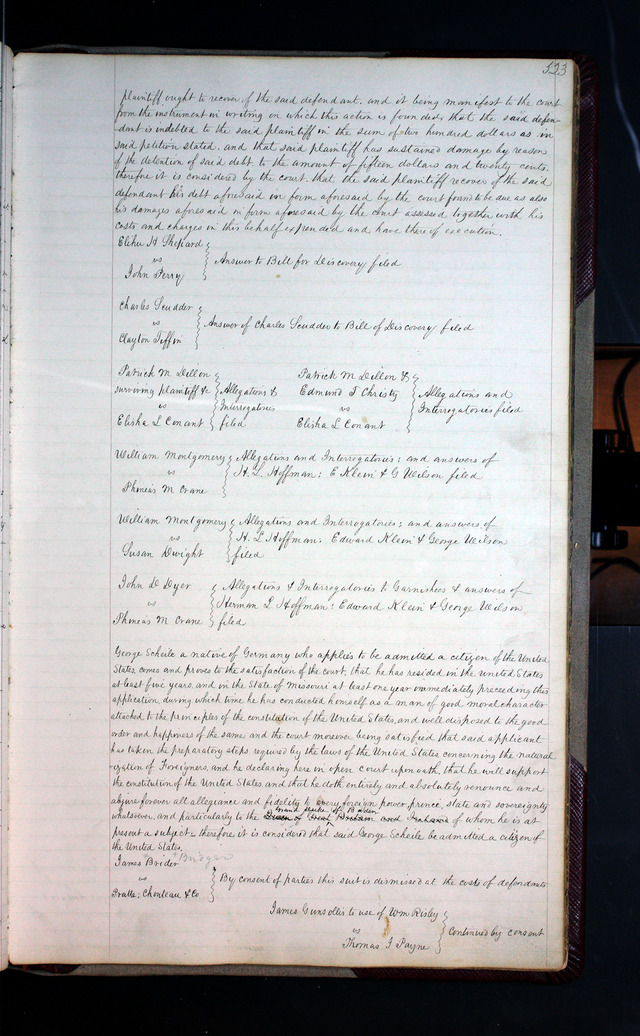 523
plaintiff ought to recover of the said defendant. and it being manifest to the court
from the instrument in writing on which this action is founded, that the said defen-
dant is indebted to the said plaintiff in the sum of two hundred dollars as in
said petition stated. and that said plaintiff has sustained damage by reason
of the detention of said debt to the amount of fifteen dollars and twenty cents.
therefore it is considered by the court. that the said plaintiff recover of the said
defendant his debt aforesaid in form aforesaid by the court found to be due as also
his damages aforesaid in form aforesaid by the court assessed together with his
costs and charges in this behalf expended and have thereof execution.
Elihu H Shepard
vs
John Perry
Answer to Bill for Discovery filed
Charles Scudder
vs
Clayton Tiffin
Answer of Charles Scudder to Bill of Discovery filed
Patrick M Dillon
surviving plaintiff &c
vs
Elisha L Conant
Allegations &
Interrogatories
filed
Patrick M Dillon &
Edmund T Christy
vs
Elisha L Conant
Allegations and
Interrogatories filed
William Montgomery
vs
Phineas M Crane
Allegations and Interrogatories; and answers of
H. L. Hoffman; E Klein & G Wilson filed
William Montgomery
vs
Susan Dwight
Allegations and Interrogatories; and answers of
H. L Hoffman; Edward Klein & George Wilson
filed
John D Dyer
vs
Phineas M Crane
Allegations & Interrogatories to Garnishees & answers of
Herman L Hoffman; Edward Klein & George Wilson
filed
George Scheile a native of Germany who applies to be admitted a citizen of the United
States, comes and proves to the satisfaction of the court, that he has resided in the United States
at least five years, and in the State of Missouri at least one year immediately preceeding this
application, during which time he has conducted himself as a man of good moral character
attached to the principles of the constitution of the United States, and well disposed to the good
order and happiness of the same and the court moreover being satisfied that said applicant
has taken the preparatory steps required by the laws of the United States concerning the natural
ization of Foreigners, and he declaring here in open court upon oath, that he will support
the constitution of the United States, and that he doth entirely and absolutely renounce and
abjure forever all allegiance and fidelity to every foreign power prince, state and sovereignty
Grand Duke of Baden
whatsoever, and particularly to the Queen of Great Britain and Ireland of whom he is at
present a subject = therefore it is considered that said George Scheile be admitted a citizen of
the United States.
James Brider Bridger
vs
Pratte; Chouteau & Co
By consent of parties this suit is dismissed at the costs of defendants
James Gunsollis to use of Wm Risley
vs
Thomas J Payne
Continued by consent